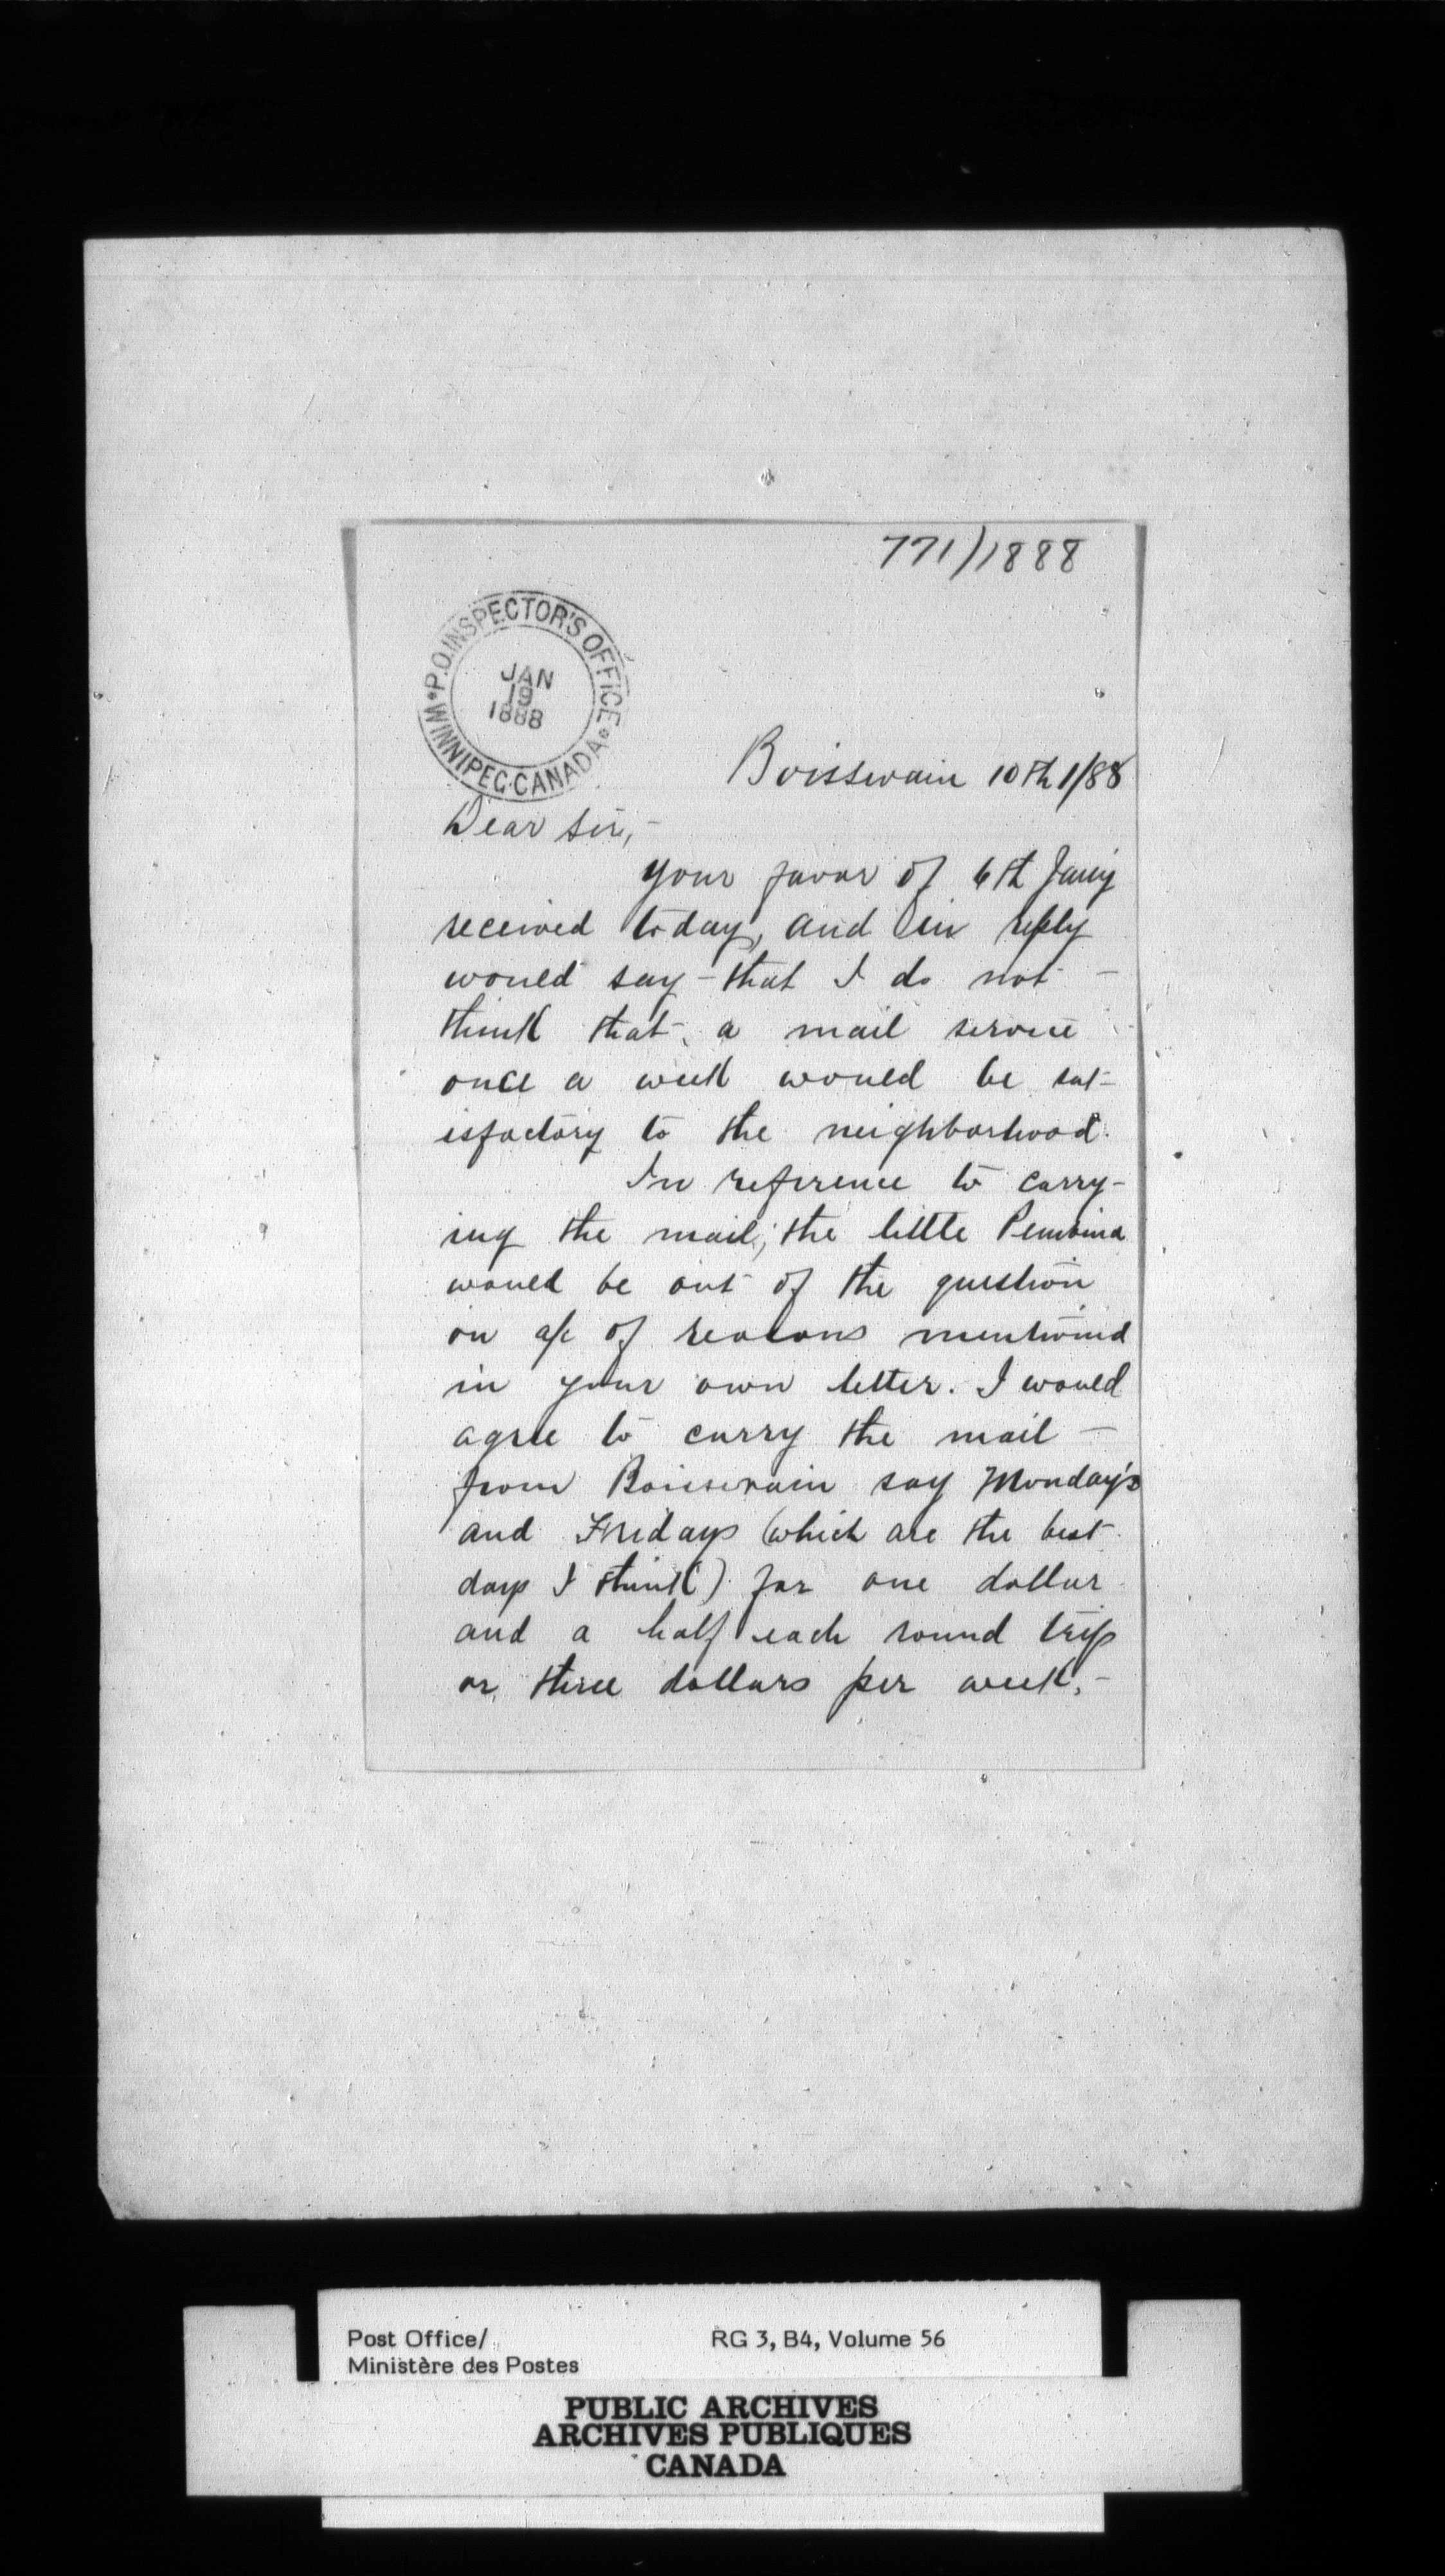 771/1888
P.O. INSPECTOR'S OFFICE
WINNIPEG. CANADA
JAN
19
1888
Boissevain 10th 1/88
Dear Sir,-
Your favor of 6th Jany
received today, and in reply
would say - that I do not -
think that a mail service
once a week would be sat-
isfactory to the neighborhood.
In reference to carry-
ing the mail; the little Pembina
would be out of the question
on a/c of reasons mentioned
in your own letter. I would
agree to carry the mail -
from Boissevain say Monday's
and Fridays (which are the best
days I think) for one dollar
and a half each round trip
or three dollars per week,-
Post Office/
Ministère des Postes
RG 3, B4, Volume 56
PUBLIC ARCHIVES
ARCHIVES PUBLIQUES
CANADA